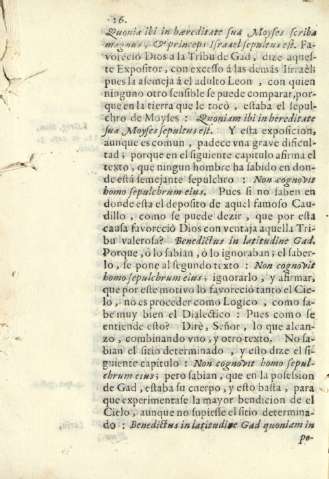 26.
Quonia ibi in hæreditate suá Moyses scriba
magnus, & princeps Israel sepultus est. Fa-
voreciò Dios a la Tribu de Gad, dize aques-
te Expositor, con excesso á las demás Israeli
pues la asemeja á el adulto Leon, con quien
ninguno otro sensible se puede comparar, por-
que en la tierra que le tocò, estaba el sepul-
chro de Moyses: Quoniam ibi in hereditate
sua Moyses sepultus est. Y esta exposicion,
aunque es comun, padece vna grave dificul-
tad; porque en el siguiente capitulo afirma el
texto, que ningun hombre ha sabido en don-
de está semejante sepulchro: Non cognovit
homo sepulchrum eius. Pues si no saben en
donde esta el deposito de aquel famoso Cau-
dillo, como se puede dezir, que por esta
causa favoreciò Dios con ventaja aquella Tri
bu valerosa? Benedictus in latitudine Gad.
Porque, ò lo sabian, ò lo ignoraban; el saber-
lo, se pone al segundo texto: Non cognovit
homo sepulchrum eius; ignorarlo, y afirmar,
que por este motivo lo favoreciò tanto el Cie-
lo, no es proceder como Logico, como sa-
be muy bien el Dialectico: Pues como se
entiende esto? Dirè, Señor, lo que alcan-
zo, combinando vno, y otro texto. No sa-
bian el sitio determinado, y esto dize el si-
guiente capitulo: Non cognovit homo sepul-
chrum eius; pero sabian, que en la possession
de Gad, estaba su cuerpo, y esto basta, para
que experimentasse la mayor bendicion de el
Cielo, aunque no supiesse el sitio determina-
do: Benedictus in latitudine Gad quoniam in
pe-